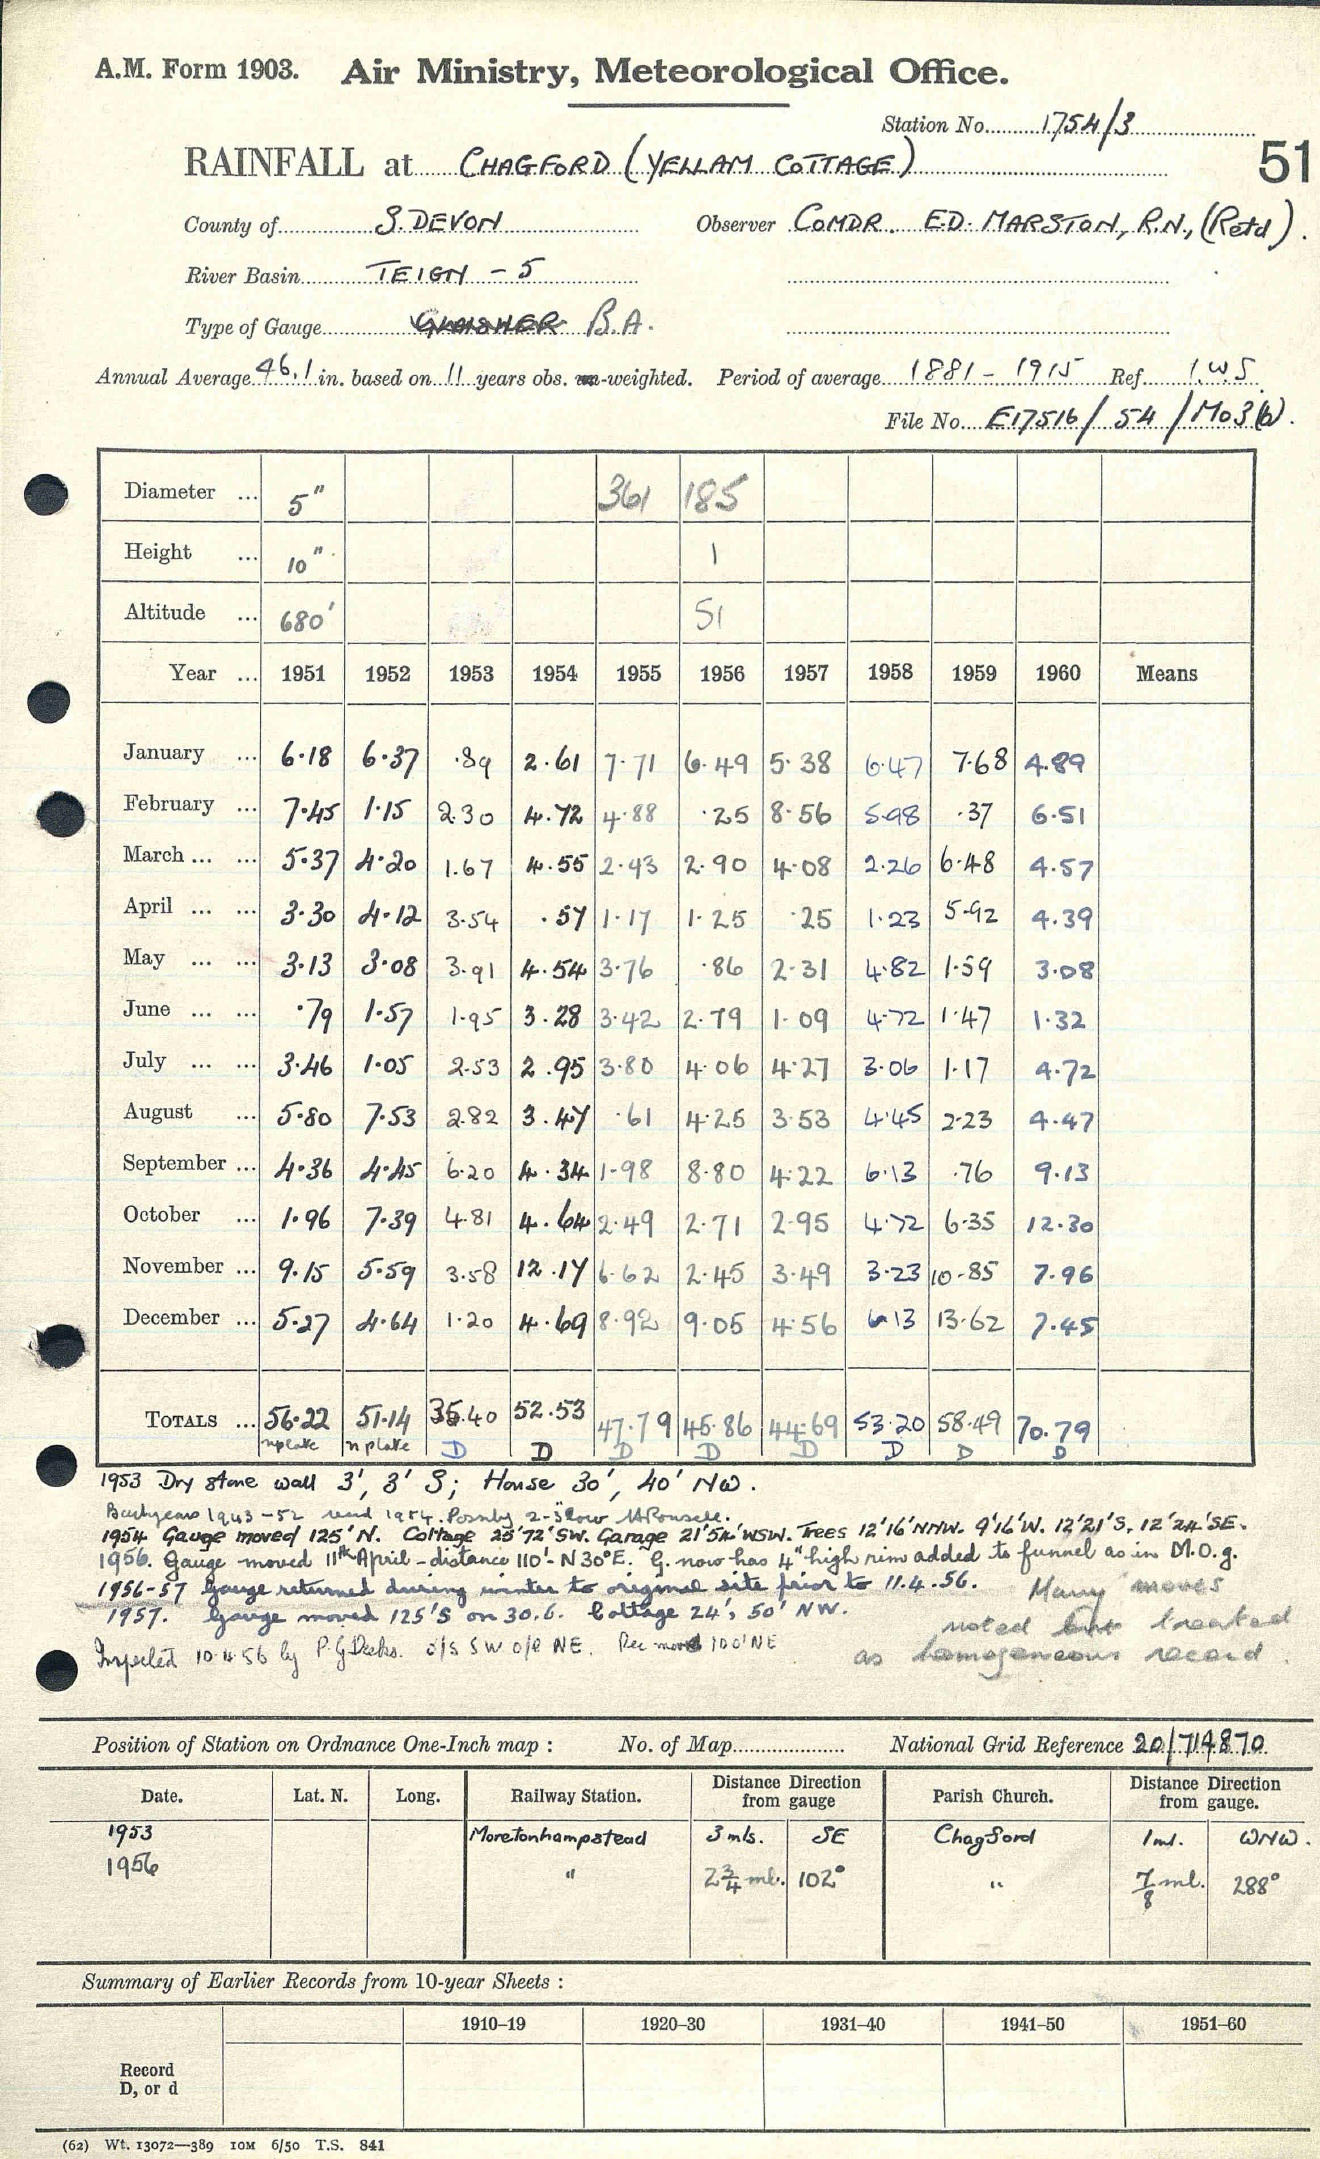 A.M. Form 1903. Air Ministry, Meteorological Office.
Station No. 1754/3
51
RAINFALL at CHAGFORD (YELLAM COTTAGE)
County of S. DEVON Observer COMDR. E.D. MARSTON, R.N., (Retd).
River Basin TEIGN - 5
Type of Gauge GLAISHER B.A.
Annual Average 46.1 in. based on 11 years obs. un-weighted. Period of average 1881 - 1915 Ref. I.W.S.
File No. E17516/54/Mo3(b).
Diameter ... 5" 361 185
Height ... 10" 1
Altitude ... 680' 51
Year ... 1951 1952 1953 1954 1955 1956 1957 1958 1959 1960 Means
January ... 6.18 6.37 .89 2.61 7.71 6.49 5.38 6.47 7.68 4.89
February ... 7.45 1.15 2.30 4.72 4.88 .25 8.56 5.98 .37 6.51
March ... ... 5.37 4.20 1.67 4.55 2.43 2.90 4.08 2.26 6.48 4.57
April ... ... 3.30 4.12 3.54 .57 1.17 1.25 .25 1.23 5.92 4.39
May ... ... 3.13 3.08 3.91 4.54 3.76 .86 2.31 4.82 1.59 3.08
June ... ... .79 1.57 1.95 3.28 3.42 2.79 1.09 4.72 1.47 1.32
July ... ... 3.46 1.05 2.53 2.95 3.80 4.06 4.27 3.06 1.17 4.72
August ... 5.80 7.53 2.82 3.47 .61 4.25 3.53 4.45 2.23 4.47
September ... 4.36 4.45 6.20 4.34 1.98 8.80 4.22 6.13 .76 9.13
October ... 1.96 7.39 4.81 4.64 2.49 2.71 2.95 4.72 6.35 12.30
November ... 9.15 5.59 3.58 12.17 6.62 2.45 3.49 3.23 10.85 7.96
December ... 5.27 4.64 1.20 4.69 8.92 9.05 4.56 6.13 13.62 7.45
TOTALS ... 56.22 51.14 35.40 52.53 47.79 45.86 44.69 53.20 58.49 70.79
n plate n plate D D D D D D D D
1953 Dry stone wall 3', 3' S; House 30', 40' NW.
1943-52 1954. Possibly 2-3" low
1954 Gauge moved 125' N. Cottage 25' 72' SW. Garage 21' 54' WSW. Trees 12' 16' NNW. 9' 16' W. 12' 21' S. 12' 24' SE.
1956. Gauge moved 11th April - distance 110' - N 30°E. G. now has 4" high rim added to funnel as in M.O.g.
1956-57 Gauge returned during winter to original site prior to 11.4.56.
1957. Gauge moved 125' S on 30.6. Cottage 24', 50' NW.
Many moves
noted but treated
as homogeneous record.
Inspected 10.4.56 by P.G. o/s SW o/p NE. Rec move 100' NE
Position of Station on Ordnance One-Inch map : No. of Map National Grid Reference 20/714870
Date. Lat. N. Long. Railway Station. Distance Direction from gauge Parish Church. Distance Direction from gauge.
1953 Moretonhampstead 3 mls. SE Chagford 1 ml. WNW.
1956 " 2 3/4 ml. 102° " 7/8 ml. 288°
Summary of Earlier Records from 10-year Sheets :
1910–19 1920–30 1931–40 1941–50 1951–60
Record
D, or d
(62) Wt. 13072—389 10M 6/50 T.S. 841